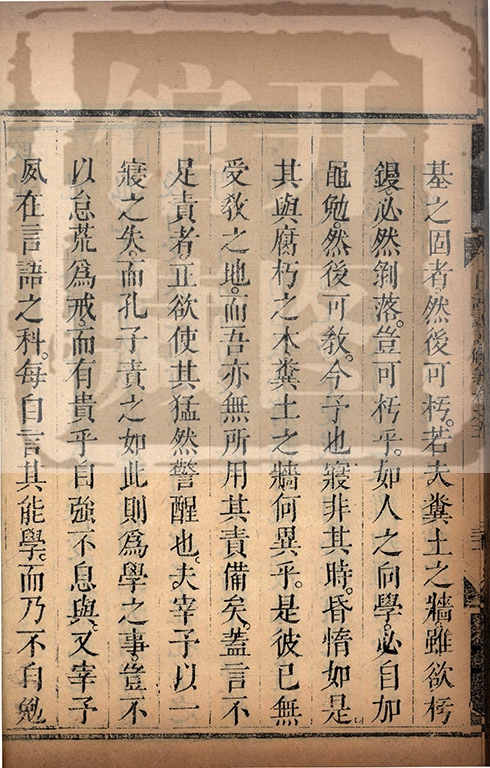 基之固者。然後可杇。若夫糞土之牆。雖欲杇
鏝。必然剝落。豈可杇乎。如人之向學。必自加
黽勉。然後可教。今子也。寢非其時。昏惰如是。
其與腐朽之木。糞土之牆何異乎。是彼已無
受教之地。而吾亦無所用其責備矣。蓋言不
足責者。正欲使其猛然警醒也。夫宰子以一
寢之失。而孔子責之如此。則爲學之事。豈不
以怠荒爲戒。而有貴乎自強不息與。又宰子
夙在言語之科。每自言其能學。而乃不自勉